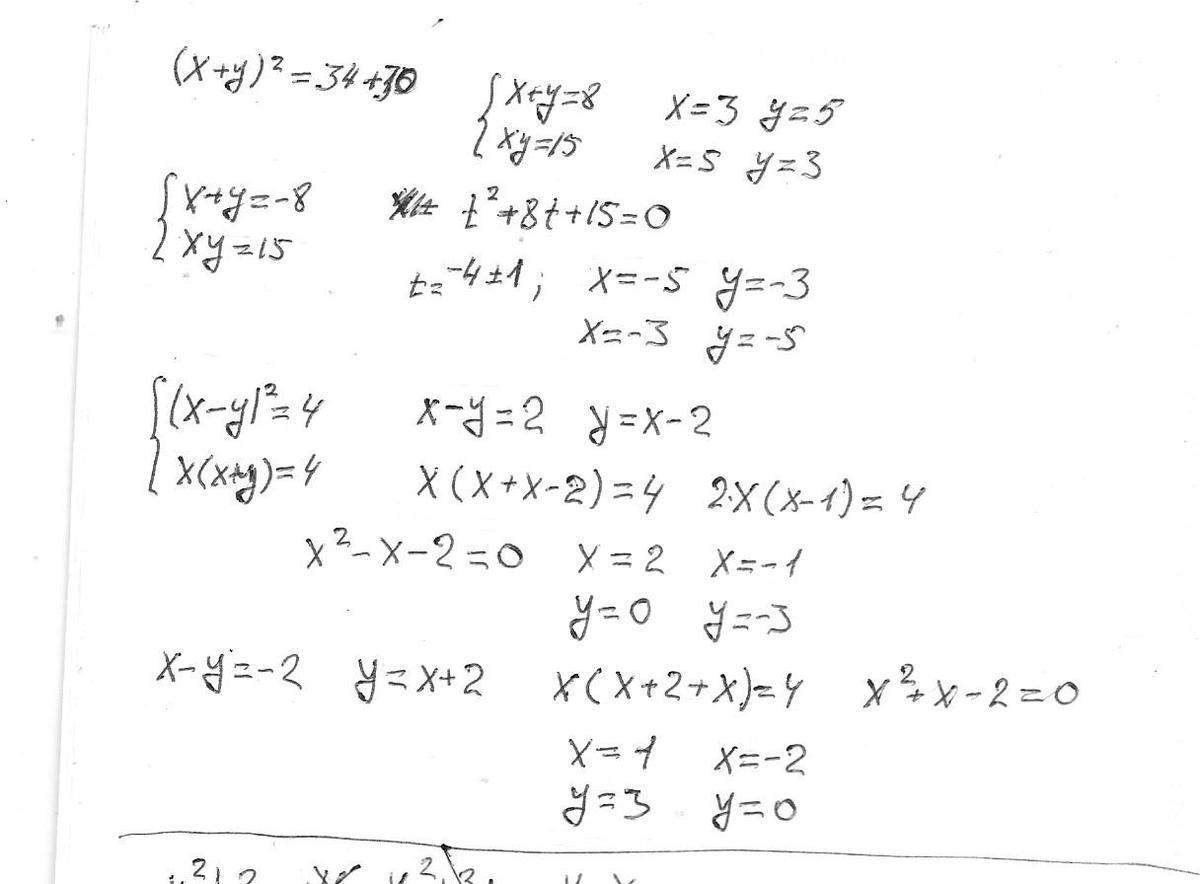 (x+y)² = 34+30
{ x+y=8 x=3 y=5
{ xy=15 x=5 y=3
{ x+y=-8 t²+8t+15=0
{ xy=15
t=-4±1; x=-5 y=-3
x=-3 y=-5
{ (x-y)²=4 x-y=2 y=x-2
{ x(x+y)=4 x(x+x-2)=4 2x(x-1)=4
x²-x-2=0 x=2 x=-1
y=0 y=-3
x-y=-2 y=x+2 x(x+2+x)=4 x²+x-2=0
x=1 x=-2
y=3 y=0